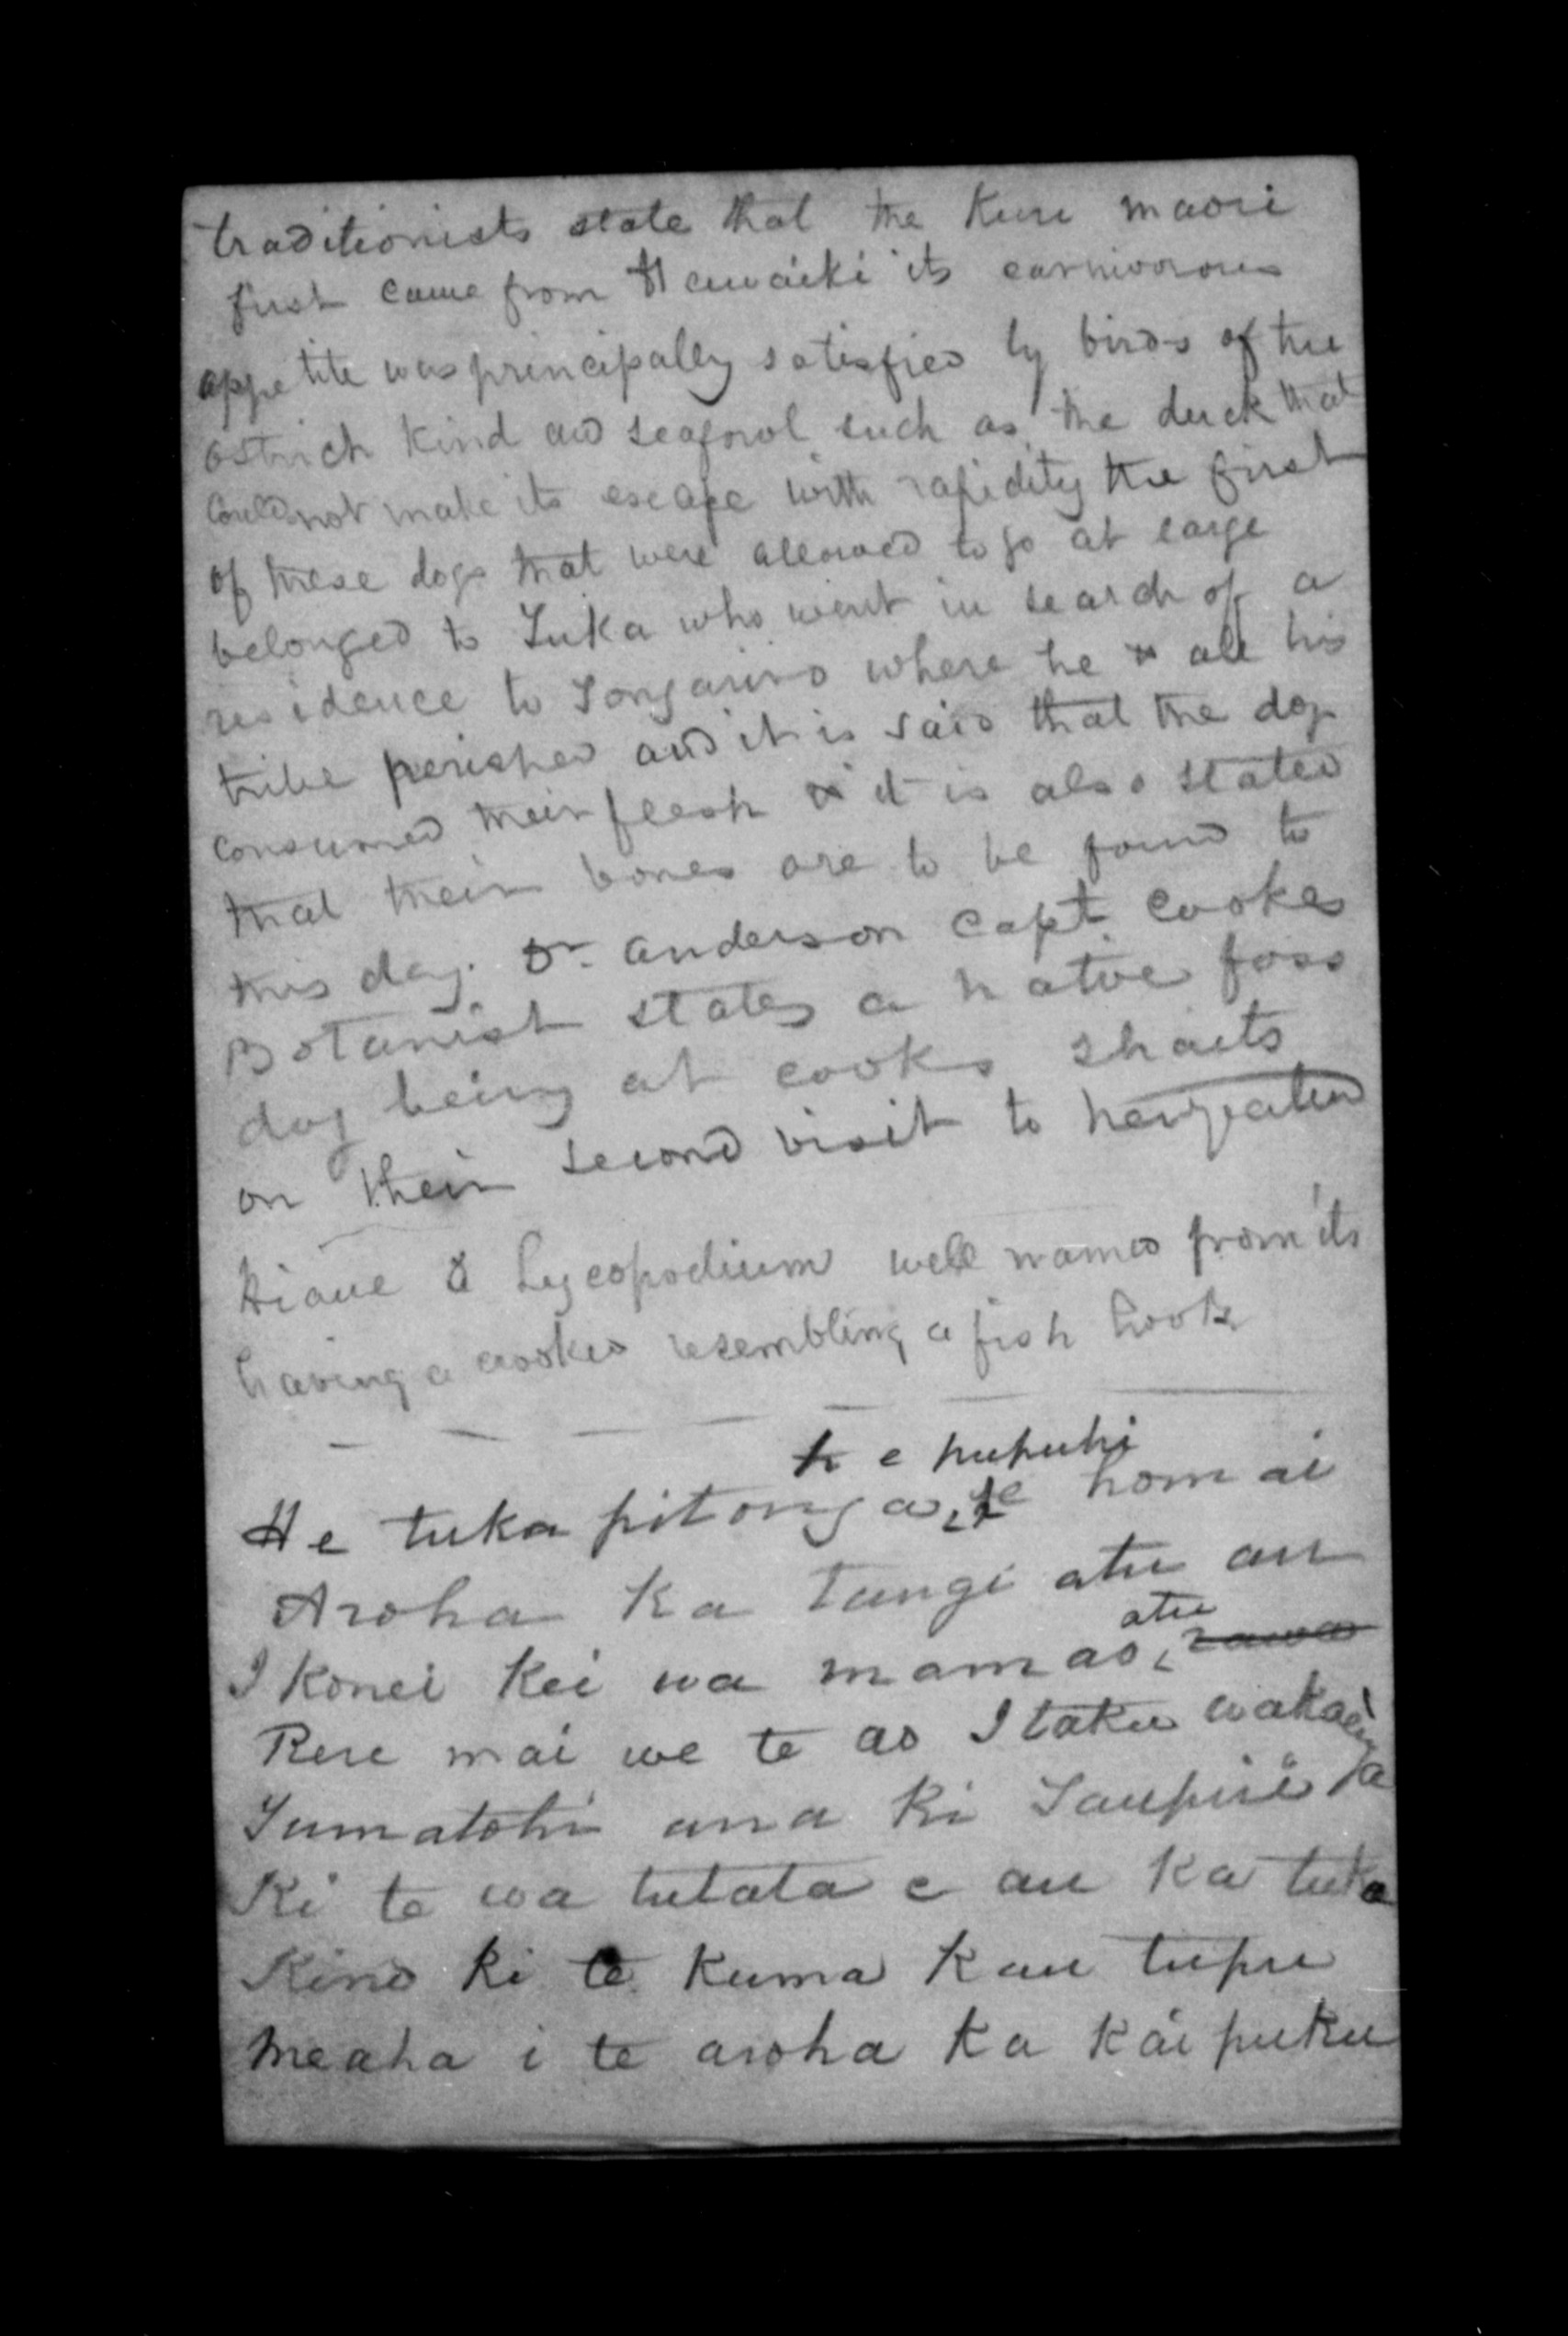 traditionists state that the Kuri maori
first came from Hawaiki its carnivorous
appetite was principally satisfied by birds of the
ostrich kind and seafowl such as the duck that
could not make its escape with rapidity the first
of these dogs that were allowed to go at large
belonged to Tuka who went in search of a
residence to Tongariro where he & all his
tribe perished and it is said that the dog
consumed their flesh & it is also stated
that their bones are to be found to
this day. Dr. anderson Capt. Cookes
Botanist states a native foss
dog being at cooks Straits
on their second visit to
a Lycopodium well named from its
having a crooked resembling a fish hook
h e pupuhi
He tuka pitonga, te homai
Aroha Ka Tangi atu au
atu
I Konei Kei wa mamao, rawa
Rere mai we te ao I taku wakaeinga
Tumatohi ana Ki Taupiri
Ki te wa tutata e au Ka tuka
Kino Ki te Kuma Kau tupu
meaha i te aroha Ka Kai puku